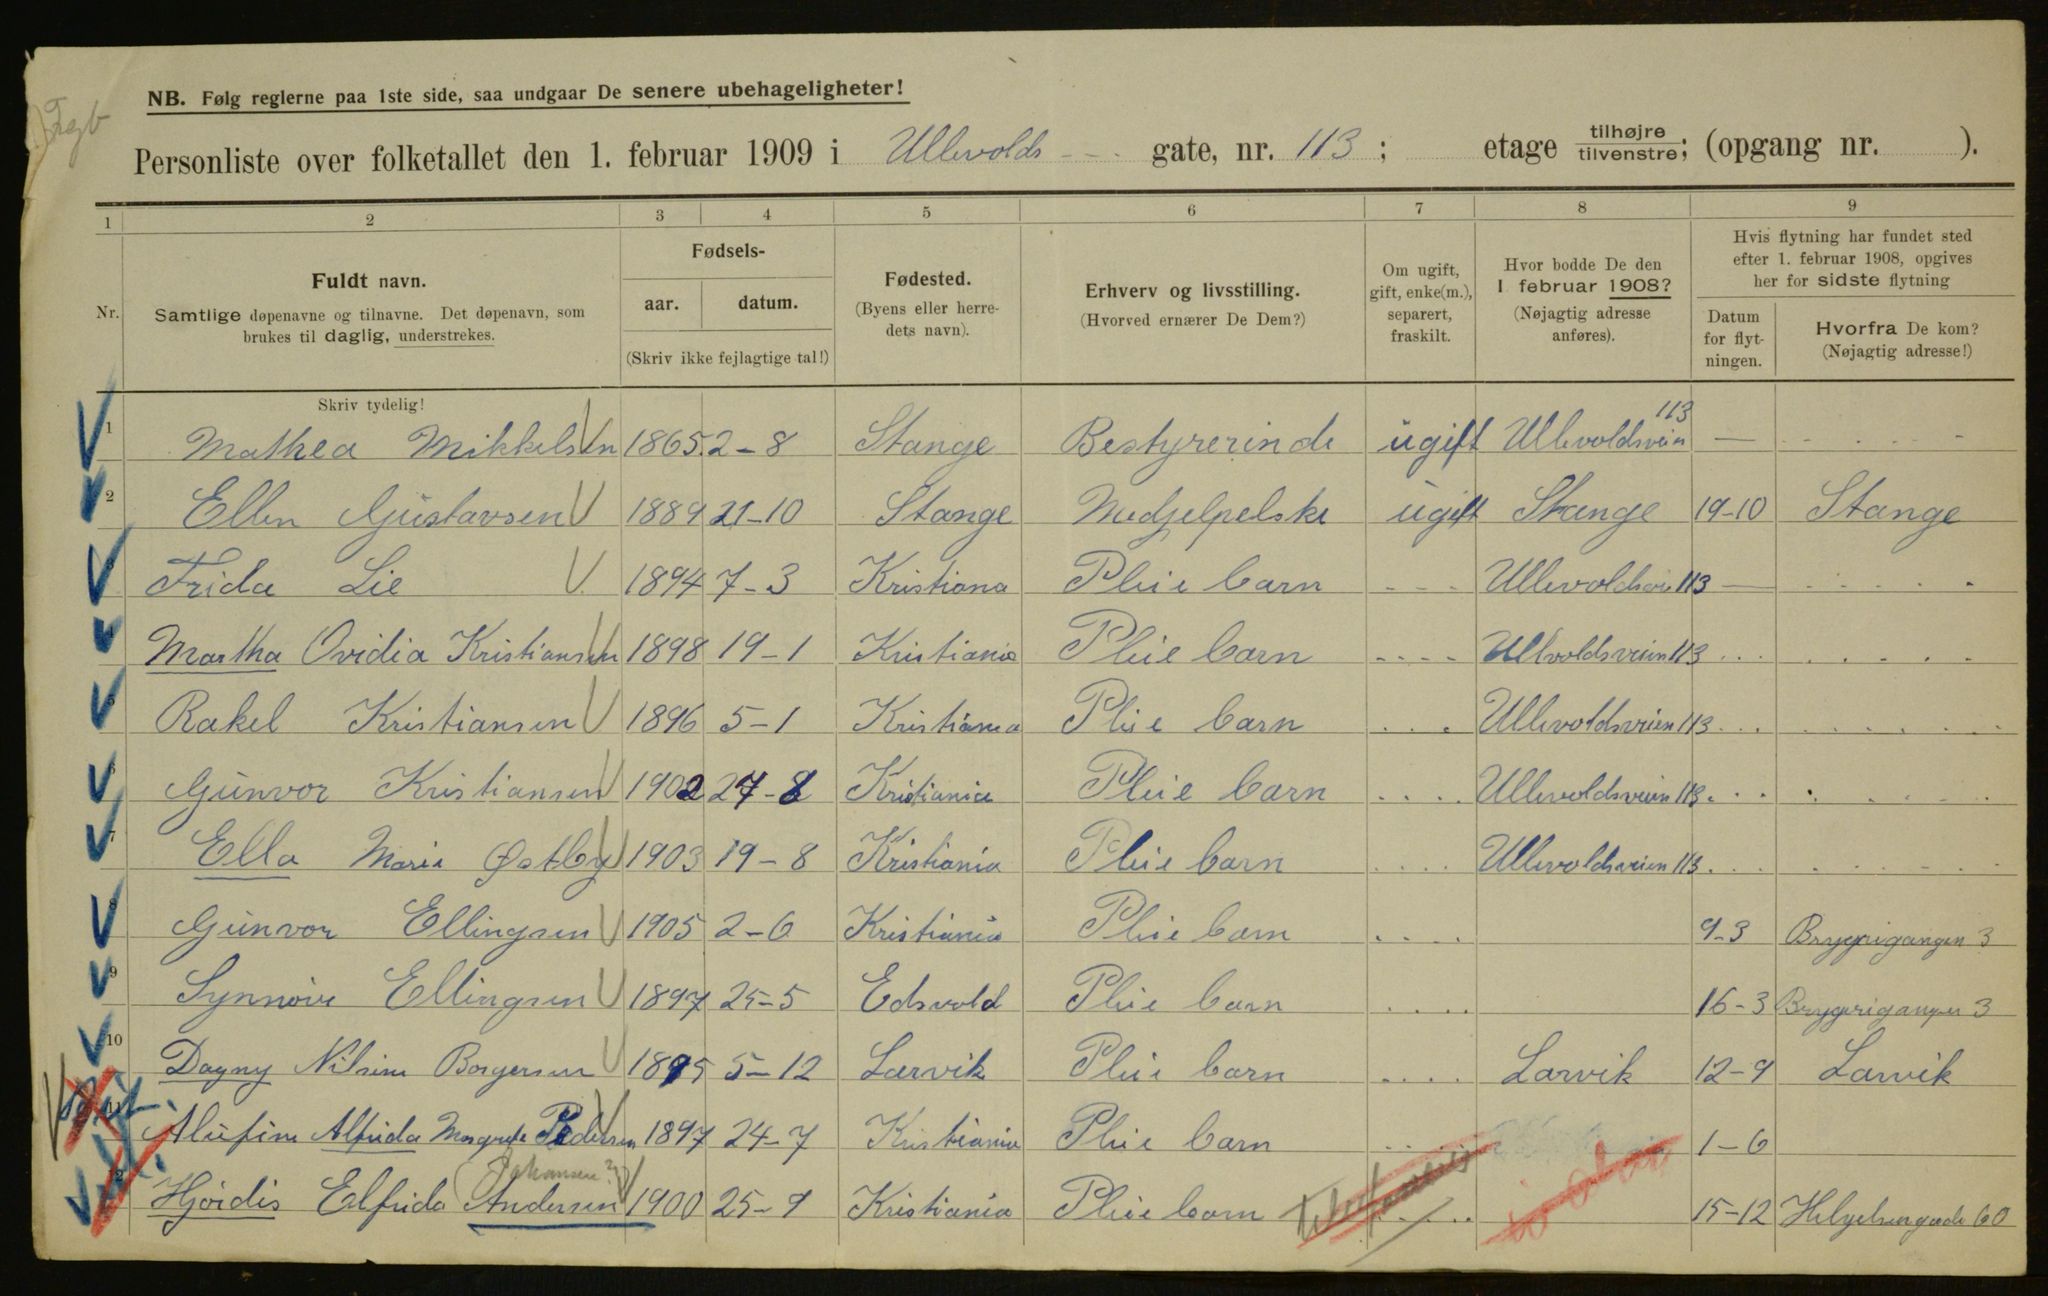 Fgb
NB. Følg reglerne paa 1ste side, saa undgaar De senere ubehageligheter!
Personliste over folketallet den 1. februar 1909 i Ullevolds gate, nr. 113 ; etage tilhøjre tilvenstre; (opgang nr. ).
1 2 3 4 5 6 7 8 9
Nr.
Fuldt navn.
Samtlige døpenavne og tilnavne. Det døpenavn, som
brukes til daglig, understrekes.
Fødsels-
aar. datum.
(Skriv ikke fejlagtige tal!)
Fødested.
(Byens eller herre-
dets navn).
Erhverv og livsstilling.
(Hvorved ernærer De Dem?)
Om ugift,
gift, enke(m.),
separert,
fraskilt.
Hvor bodde De den
1. februar 1908?
(Nøjagtig adresse
anføres).
Hvis flytning har fundet sted
efter 1. februar 1908, opgives
her for sidste flytning
Datum
for flyt-
ningen.
Hvorfra De kom?
(Nøjagtig adresse!)
Skriv tydelig!
1 Mathea Mikkelsen 1865 2-8 Stange Bestyrerinde ugift Ullevoldsveien 113 —
2 Ellen Gustavsen 1889 21-10 Stange Medjelpelske ugift Stange 19-10 Stange
Frida Lie 1894 7-3 Kristiana Pleie barn Ullevoldsvei 113 —
4 Martha Ovidia Kristiansen 1898 19-1 Kristiania Pleie barn Ullevoldsveien 113
5 Rakel Kristiansen 1896 5-1 Kristiania Pleie barn Ullevoldsveien 113
6 Gunvor Kristiansen 1902 27-8 Kristiania Pleie barn Ullevoldsveien 113
7 Ella Marie Østby 1903 19-8 Kristiania Pleie barn Ullevoldsveien 113
8 Gunvor Ellingsen 1905 2-6 Kristiania Pleie barn 9-3 Bryggerigangen 3
9 Synnøve Ellingsen 1897 25-5 Edsvold Pleie barn 16-3 Bryggerigangen 3
10 Dagny Nilsine Borgersen 1895 5-12 Larvik Pleie barn Larvik 12-9 Larvik
11 Alufine Alfrida Margrete Pedersen 1897 24-7 Kristiania Pleie barn 1-6
12 Hjørdis Elfrida Andersen (Johansen?) 1900 25-9 Kristiania Pleie barn 15-12 Helgesensgade 60